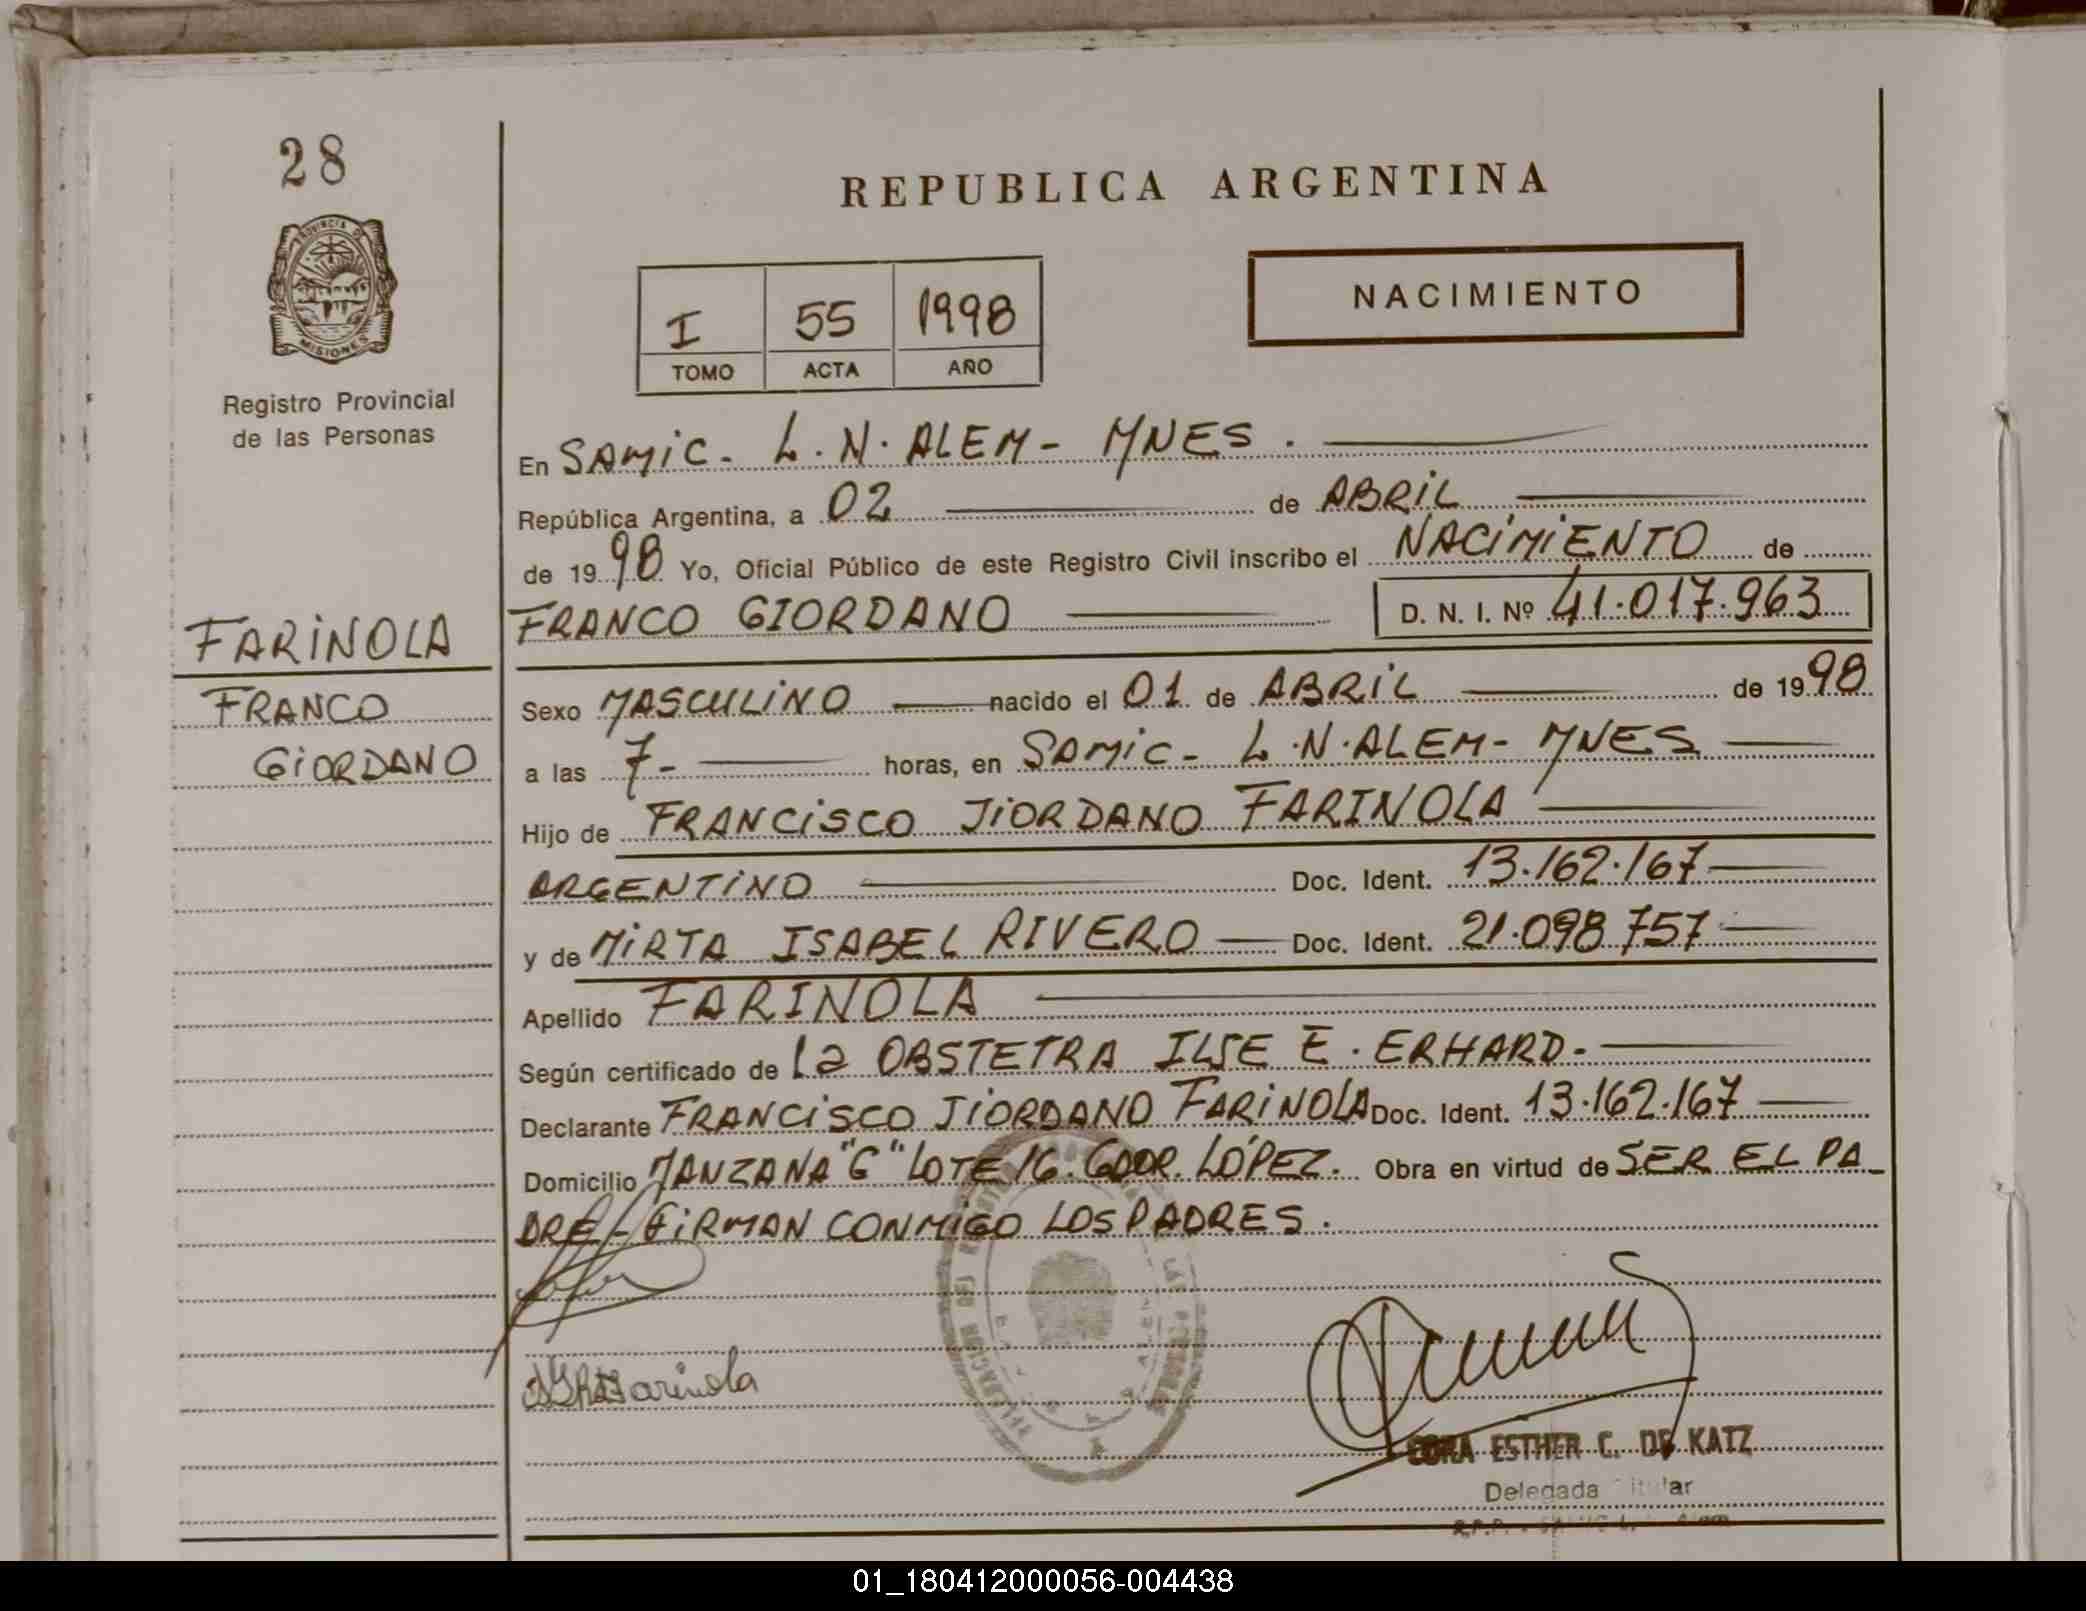 28
PROVINCIA DE
MISIONES
Registro Provincial
de las Personas
FARINOLA
FRANCO
GIORDANO
REPUBLICA ARGENTINA
I 55 1998
TOMO ACTA AÑO
NACIMIENTO
En SAMIC - L.N. ALEM - MNES.
República Argentina, a 02 de ABRIL
de 1998 Yo, Oficial Público de este Registro Civil inscribo el NACIMIENTO de
FRANCO GIORDANO D. N. I. Nº 41.017.963
Sexo MASCULINO nacido el 01 de ABRIL de 1998
a las 7- horas, en SAMIC - L.N. ALEM - MNES
Hijo de FRANCISCO JIORDANO FARINOLA
ARGENTINO Doc. Ident. 13.162.167
y de MIRTA ISABEL RIVERO Doc. Ident. 21.098.757
Apellido FARINOLA
Según certificado de la OBSTETRA ILSE E. ERHARD.-
Declarante FRANCISCO JIORDANO FARINOLA Doc. Ident. 13.162.167
Domicilio MANZANA "G" LOTE 16. GDOR. LÓPEZ. Obra en virtud de SER EL PA-
DRE - FIRMAN CONMIGO LOS PADRES.
CORA ESTHER C. DE KATZ
Delegada Titular
01_180412000056-004438